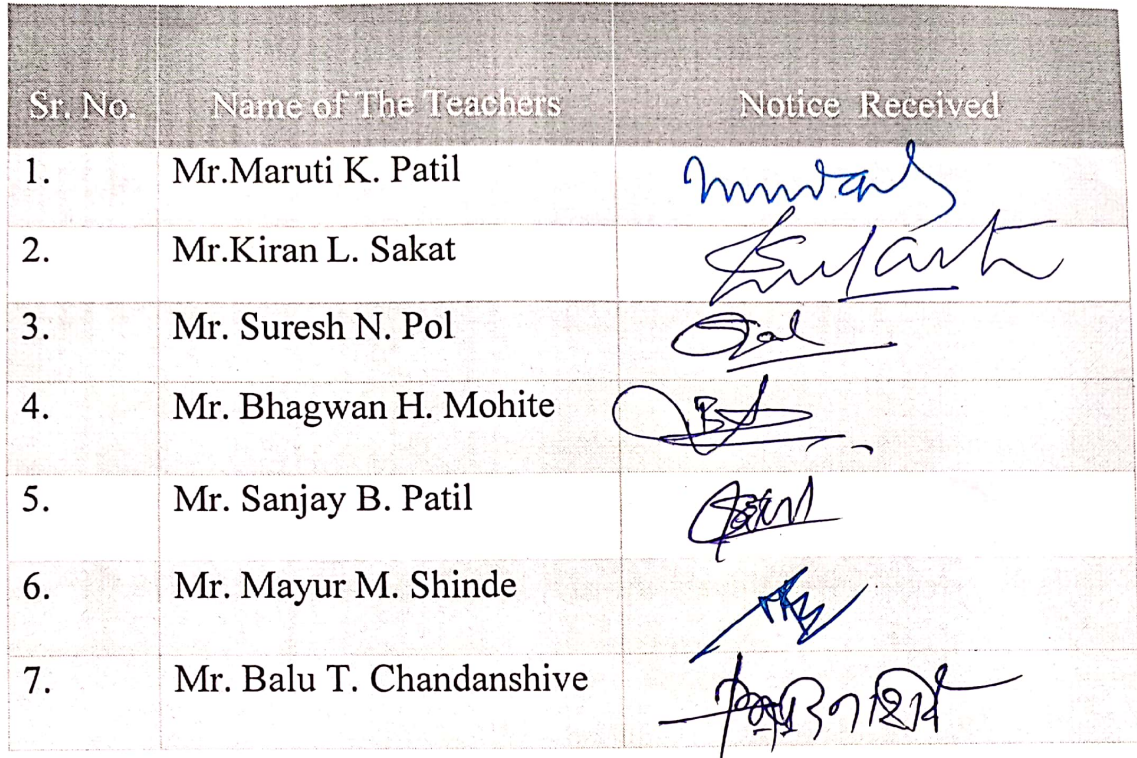 Sr. No. Name of The Teachers Notice Received
1. Mr.Maruti K. Patil
2. Mr.Kiran L. Sakat
3. Mr. Suresh N. Pol
4. Mr. Bhagwan H. Mohite
5. Mr. Sanjay B. Patil
6. Mr. Mayur M. Shinde
7. Mr. Balu T. Chandanshive